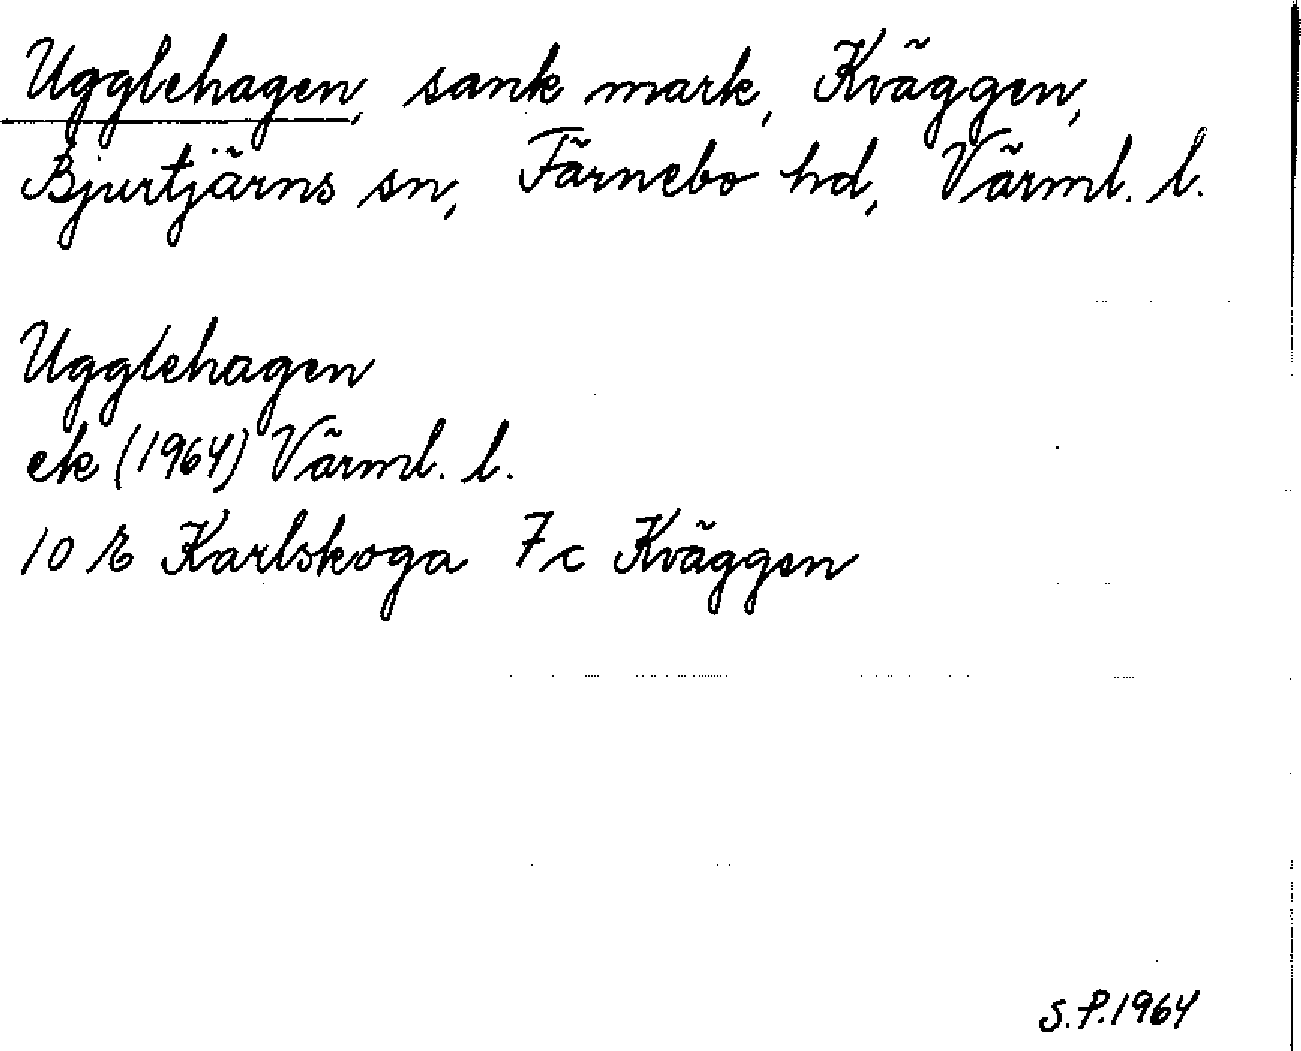 Ugglehagen, sank mark, Kväggen,
Bjurtjärns sn, Färnebo hd, Värml. l.
Ugglehagen
ek (1964) Värml. l.
10 E Karlskoga 7c Kväggen
S.P.1964